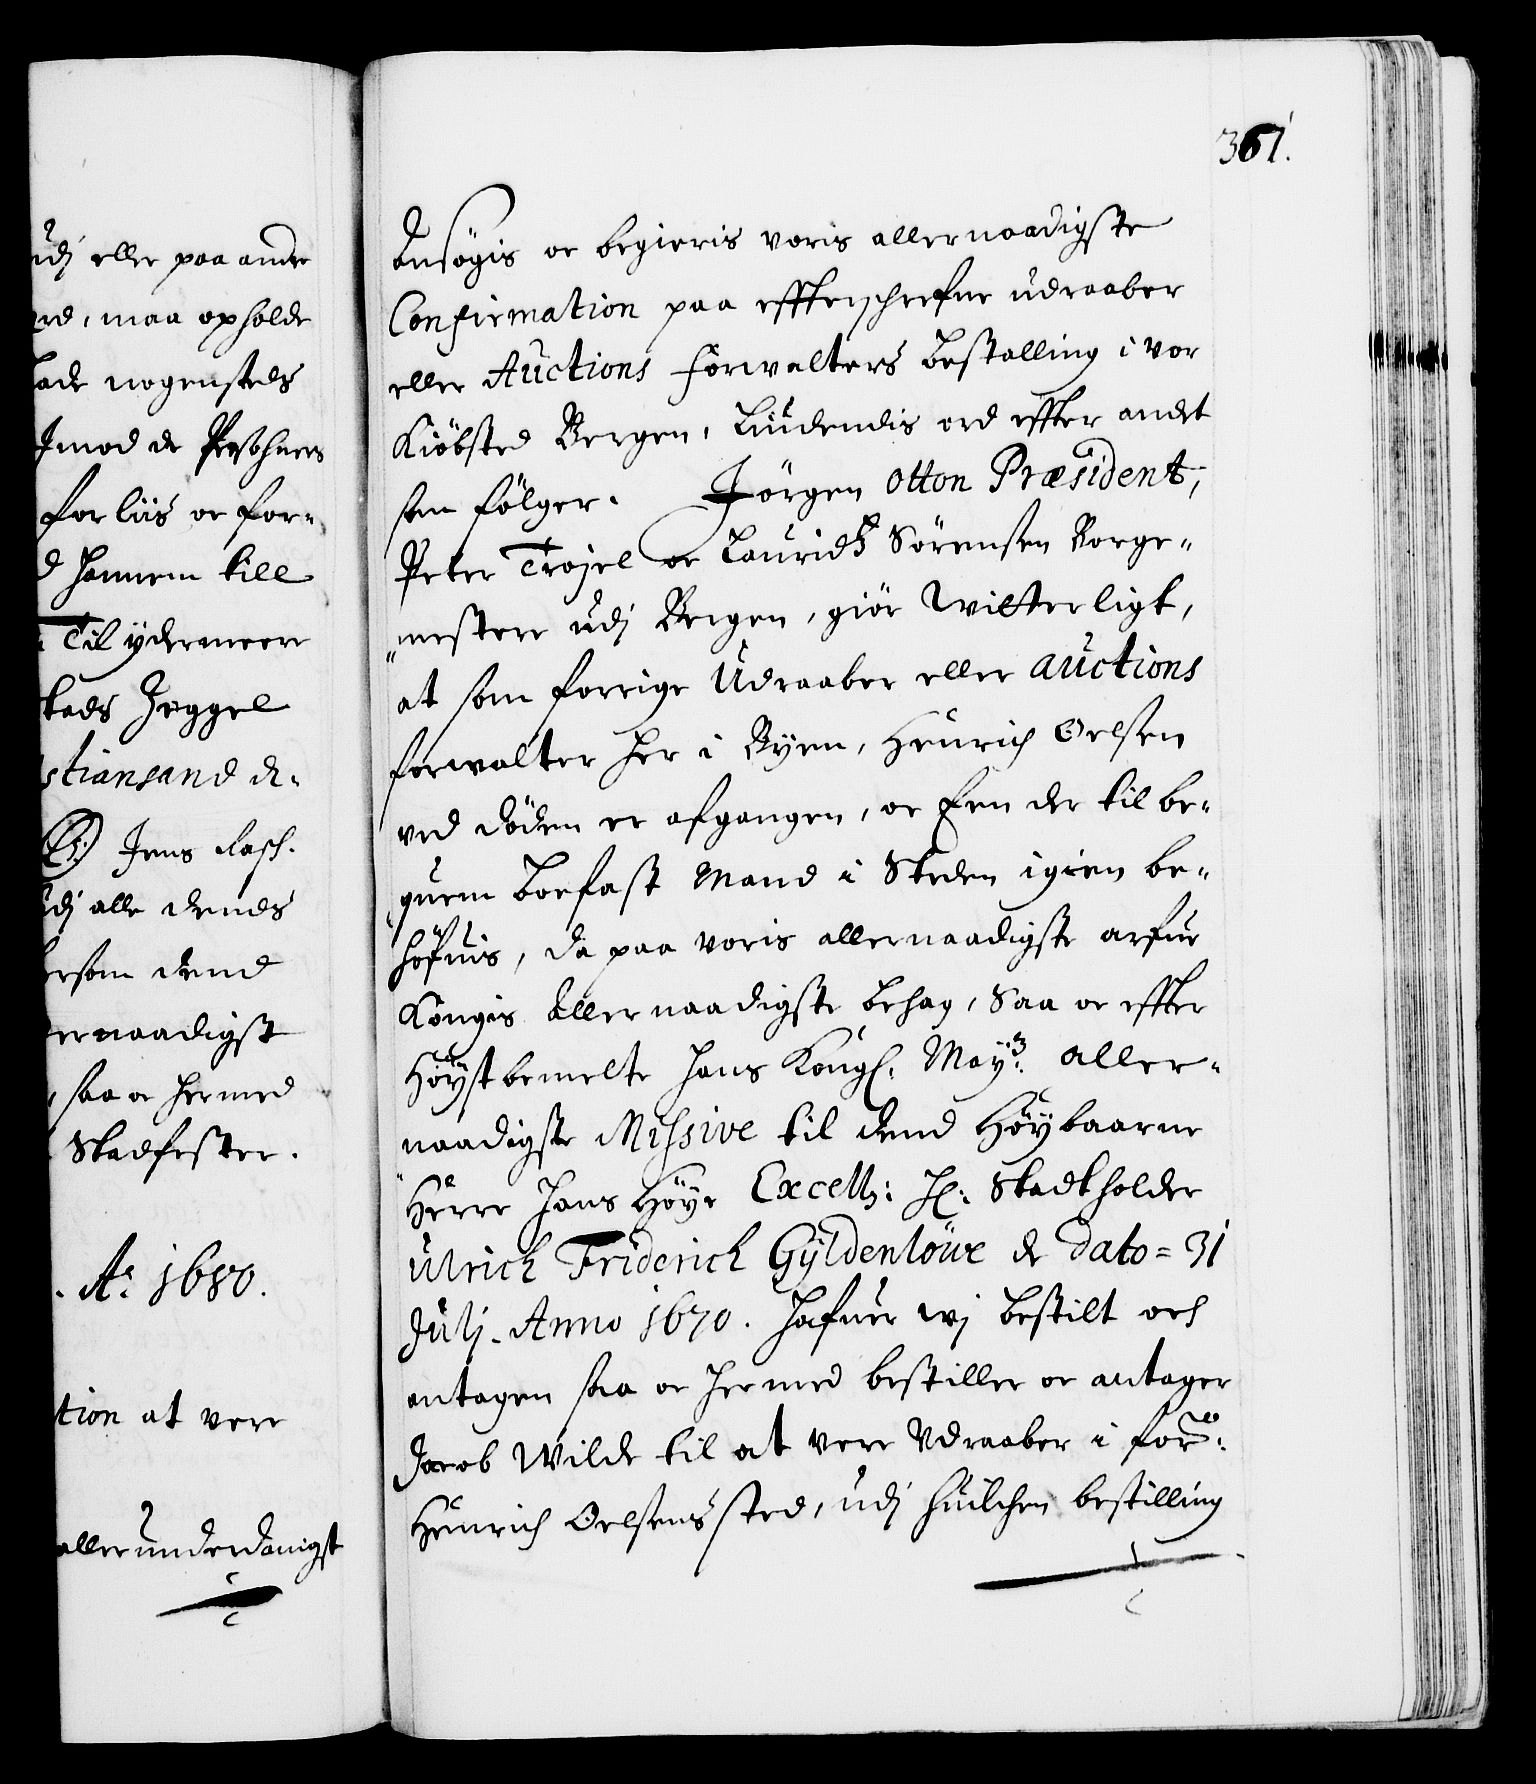 361.
udj eller paa andre
erd, maa opholde
lade nogensteds
Imod de Persohners
forliis oc for-
d hannem till
Til ydermeere
kads Zeggel
stiansand d.
Jens Rasch.
udj alle dends
ersom dend
ernaadigst
saa oc hermed
Stadfester.
Ao. 1680.
tion at vere
allerunderdanigst
Ansøgis oc begieris voris allernaadigste
Confirmation paa effterschrefne udraaber
eller Auctions forwalters bestalling i vor
Kiöbsted Bergen, Liudendis ord effter andet
som fölger. Jörgen Otton Præsident,
Peter Trojel oc Lauridtz Sörensen Borge-
mestere udj Bergen, giör Witterligt,
at som forrige Udraaber eller auctions
forwalter her i Byen, Henrich Oelsen
ved döden er afgangen, oc Een der til be-
quem boefast Mand i Steden igien be-
höfuis, da paa voris allernaadigste arfue
Kongis Allernaadigste behag, Saa oc effter
Höystbemelte hans Kongl. Mayts. aller-
naadigste Missive til dend Höybaarne
Herre hans Höye Excell: Hr: Stadtholder
Ulrich Friderich Gyldenlöwe de dato = 31
Julj. Anno 1670. hafuer wj bestilt och
antagen saa oc hermed bestiller oc antager
Jacob Wilde til at vere Udraaber i forne.
Henrich Oelsens sted, udj huilchen bestilling